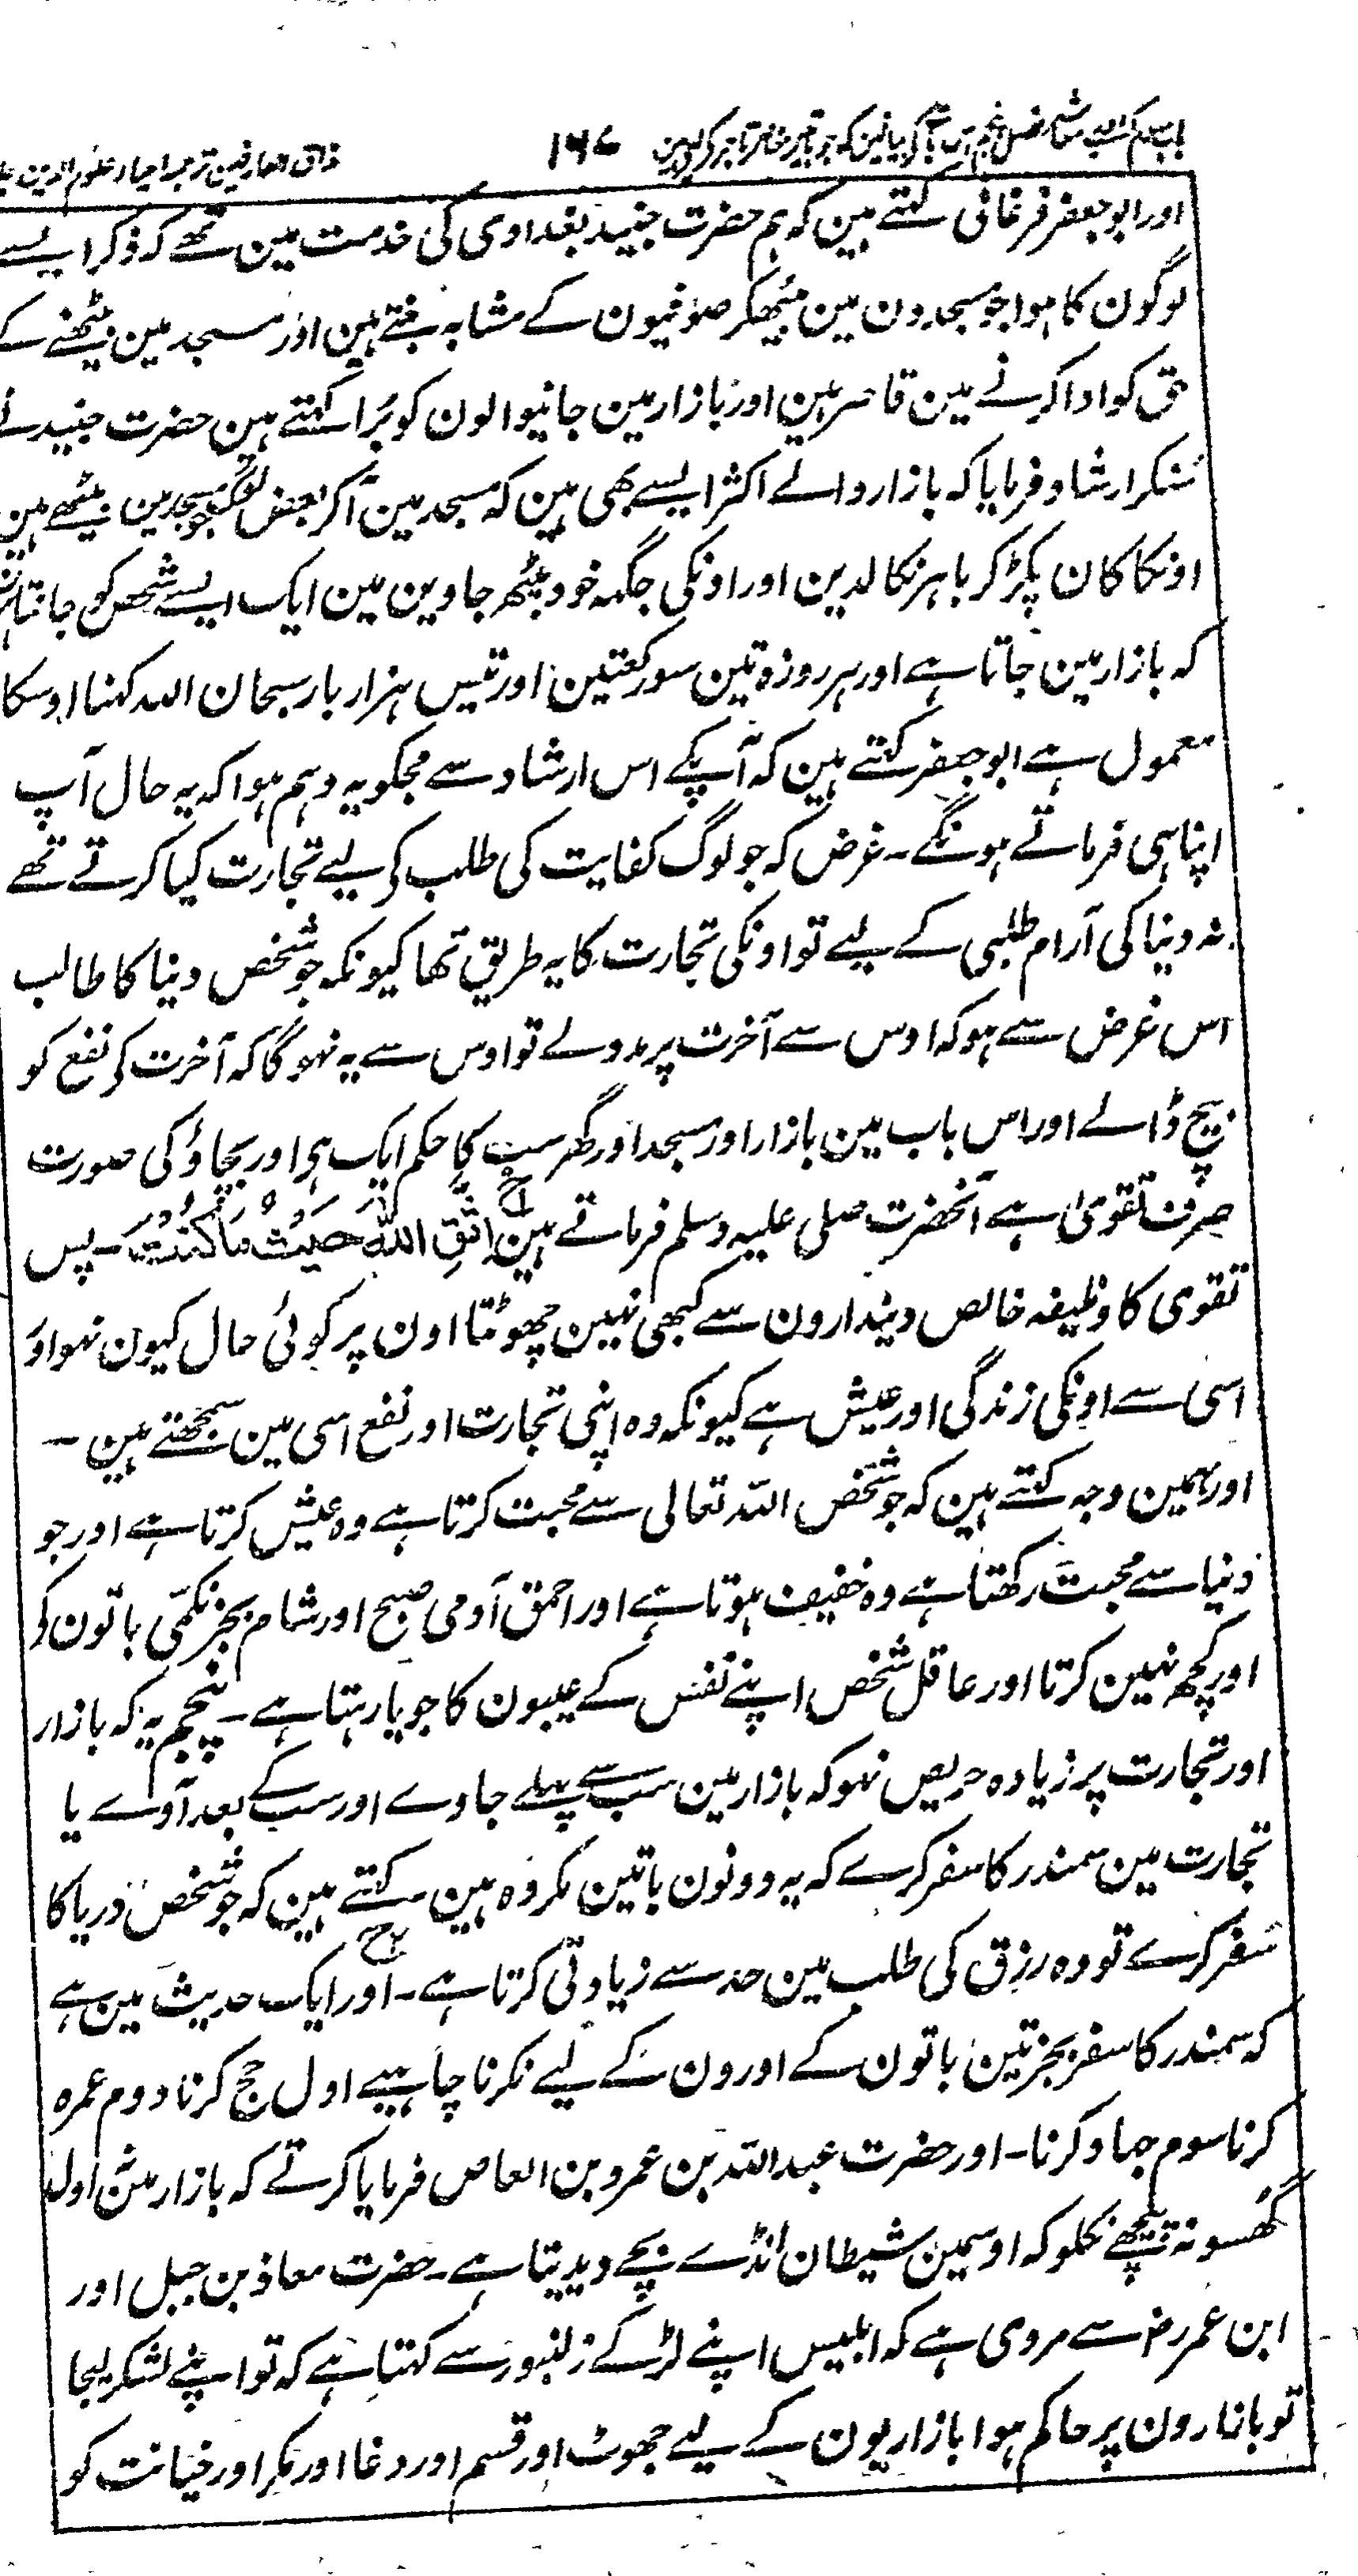 ۱۶۷
اور ابو جعفر فرغانی کہتے ہین کہ ہم حضرت جنید بغدادی کی خدمت مین تھے کہ ذکر ایسے
لوگون کا ہوا جو مسجدون مین بیٹھکر صوفیون کے مشابہ بنتے ہین اور مسجد مین بیٹھنے کے
حق کو ادا کرنے مین قاصر ہین اور بازار مین جانیوالون کو بُرا کہتے ہین حضرت جنید نے
سُنکر ارشاد فرمایا کہ بازار والے اکثر ایسے بھی ہین کہ مسجد مین آکر بعض لوگ جو مسجد مین بیٹھے ہین
اونکا کان پکڑ کر باہر نکالدین اور اونکی جگہہ خود بیٹھہ جاوین مین ایک ایسے شخص کو جانتا ہون
کہ بازار مین جاتا ہے اور ہر روزہ تین سو رکعتین اور تیس ہزار بار سبحان اللہ کہنا اوسکا
معمول ہے ابو جعفر کہتے ہین کہ آپکے اس ارشاد سے مجکو یہ وہم ہوا کہ یہ حال آپ
اپنا ہی فرماتے ہونگے۔ غرض کہ جو لوگ کفایت کی طلب کے لیے تجارت کیا کرتے تھے
نہ دنیا کی آرام طلبی کے لیے تو اونکی تجارت کا یہ طریق تھا کیونکہ جو شخص دنیا کا طالب
اس غرض سے ہو کہ اوس سے آخرت پر مدد لے تو اوس سے یہ نہوگا کہ آخرت کے نفع کو
بیچ ڈالے اور اس باب مین بازار اور مسجد اور گھر سب کا حکم ایک ہی اور بچاؤ کی صورت
صرف تقویٰ ہے آنحضرت صلی علیہ وسلم فرماتے ہین اتَّقِ اللّٰهَ حَيْثُ مَا كُنْتَ۔ پس
تقوی کا وظیفہ خالص دیندارون سے کبھی نہین چھوٹتا اون پر کوئی حال کیون نہو اور
اسی سے اونکی زندگی اور عیش ہے کیونکہ وہ اپنی تجارت اور نفع اسی مین سمجھتے ہین ۔
اور ہمین وجہ کہتے ہین کہ جو شخص اللہ تعالی سے محبت کرتا ہے وہ عیش کرتا ہے اور جو
دنیا سے محبت رکھتا ہے وہ خفیف ہوتا ہے اور احمق آدمی صبح اور شام بجز نکمّی باتون کے
اور کچھ نہین کرتا اور عاقل شخص اپنے نفس کے عیبون کا جویا رہتا ہے۔ پنجم یہ کہ بازار
اور تجارت پر زیادہ حریص نہو کہ بازار مین سب سے پہلے جاوے اور سب کے بعد آوے یا
تجارت مین سمندر کا سفر کرے کہ یہ دونون باتین مکروہ ہین کہتے ہین کہ جو شخص دریا کا
سفر کرے تو وہ رزق کی طلب مین حد سے زیادتی کرتا ہے۔ اور ایک حدیث مین ہے
کہ سمندر کا سفر بجز تین باتون کے اورون کے لیے نکرنا چاہیے اول حج کرنا دوم عمرہ
کرنا سوم جہاد کرنا۔ اور حضرت عبد اللہ بن عمرو بن العاص فرمایا کرتے کہ بازار مین نہ اول
گھسو نہ پیچھے نکلو کہ اوسمین شیطان انڈے بچے دیدیتا ہے۔ حضرت معاذ بن جبل اور
ابن عمر رض سے مروی ہے کہ ابلیس اپنے لڑکے زلنبور سے کہتا ہے کہ تو اپنے لشکر لیجا
تو بازارون پر حاکم ہوا بازاریون کے لیے جھوٹ اور قسم اور دغا اور مکر اور خیانت کو